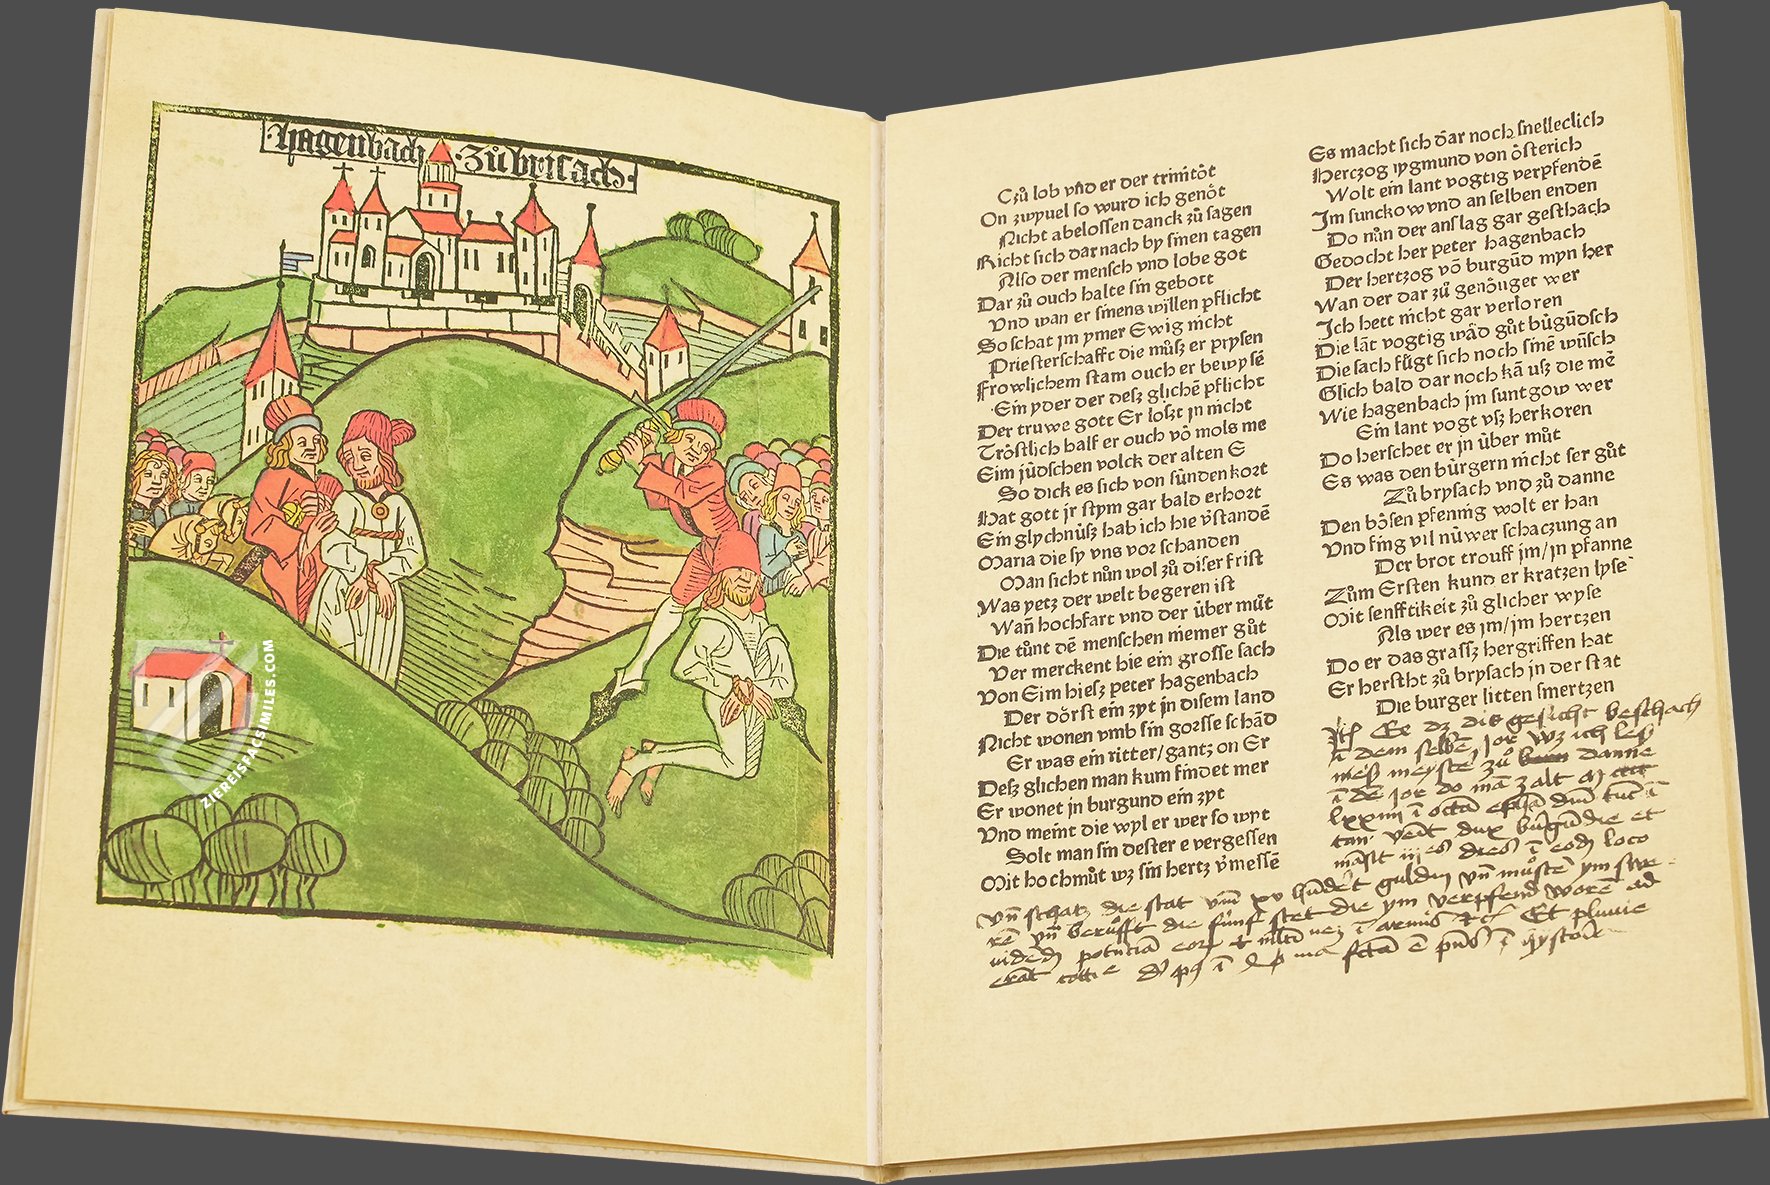 ·hagenbach·zů brisach·
ZIEREISFACSIMILES.COM
Czů lob vñd er der trinitöt
On zwyuel so wurd ich genöt
Nicht abelossen danck zů sagen
Richt sich dar nach by sinen tagen
Also der mensch vnd lobe got
Dar zů ouch halte sin gebott
Vnd wan er sinens willen pflicht
So schat jm ymer Ewig nicht
Priesterschafft die můsz er prysen
Frowlichem stam ouch er bewysē
Ein yder der desz glichē pflicht
Der truwe gott Er loszt jn nicht
Tröstlich half er ouch vō mols me
Eim jüdschen volck der alten E
So dick es sich von sünden kort
Hat gott jr stym gar bald erhort
Ein glychnüsz hab ich hie v̄standē
Maria die sy vns vor schanden
Man sicht nůn wol zů diser frist
Was yetz der welt begeren ist
Wañ hochfart vnd der über můt
Die tůnt dē menschen niemer gůt
Ver merckent hie ein grosse sach
Von Eim hiesz peter hagenbach
Der dörst ein zyt jn disem land
Nicht wonen vmb sin gorsse schād
Er was ein ritter/gantz on Er
Desz glichen man kum findet mer
Er wonet jn burgund ein zyt
Vnd meint die wyl er wer so wyt
Solt man sin dester e vergessen
Mit hochmůt wz sin hertz v̄messē
Es macht sich dar noch snelleclich
Herczog sygmund von österich
Wolt ein lant vogtig verpfendē
Jm sunckow vnd an selben enden
Do nůn der anslag gar gesthach
Gedocht her peter hagenbach
Der hertzog vō burgūd myn her
Wan der dar zů genöuget wer
Ich hett nicht gar verloren
Die lāt vogtig wād gůt bůgūdsch
Die sach fůgt sich noch sinē wūsch
Glich bald dar noch kā usz die mē
Wie hagenbach jm suntgow wer
Ein lant vogt vsz herkoren
Do herschet er jn über můt
Es was den bürgern nicht ser gůt
Zů brysach vnd zů danne
Den bösen pfennig wolt er han
Vnd fing vil nüwer schaczung an
Der brot trouff jm/jn pfanne
Zům Ersten kund er kratzen lyse
Mit senfftikeit zů glicher wyse
Als wer es jm/jm hertzen
Do er das grassz hergriffen hat
Er herstht zů brysach jn der stat
Die burger litten smertzen
dz dis gesicht beschach
dem selbē jor wz ich
meyster zů danne
jor do mā zalt
lxxiiii
dux burgūdie et
loco
vñ schatz die stat xv hūdert guldin vñ můstē ym
vñ berůfft die fünf stet die ym verpfend worē
potēciā
Et